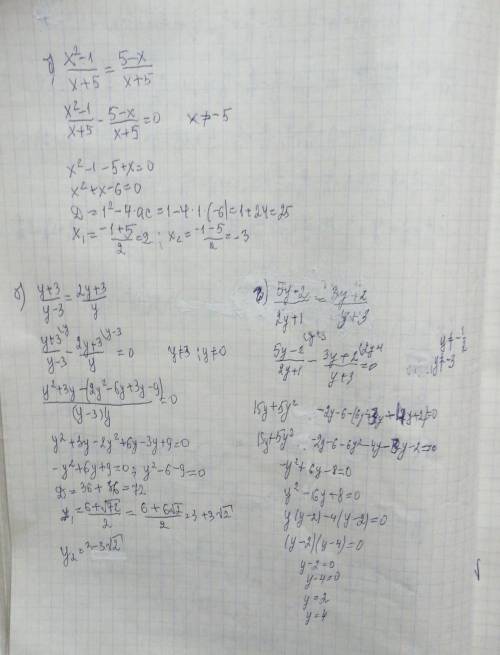 б) (x²-1)/(x+5) = (5-x)/(x+5)
(x²-1)/(x+5) - (5-x)/(x+5) = 0   x ≠ -5
x²-1-5+x=0
x²+x-6=0
D = 1²-4·ac = 1-4·1·(-6) = 1+24=25
x₁ = (-1+5)/2 = 2 ; x₂ = (-1-5)/2 = -3
б) (y+3)/(y-3) = (2y+3)/y
(y+3)\y/(y-3) - (2y+3)\y-3/y = 0   y≠3 ; y≠0
(y²+3y-(2y²-6y+3y-9))/((y-3)y) = 0
y²+3y-2y²+6y-3y+9=0
-y²+6y+9=0; y²-6-9=0
D = 36+36=72
y₁ = (6+√72)/2 = (6+6√2)/2 = 3+3√2
y₂ = 3-3√2
(5y-2)/(2y+1) = (3y+2)/(y+3)
(5y-2)\y+3/(2y+1) - (3y+2)\2y+1/(y+3) = 0   y≠-1/2
y≠-3
15y+5y²
15y+5y² -2y-6-6y²-4y-3y-2=0
-y²+6y-8=0
y²-6y+8=0
y(y-2)-4(y-2)=0
(y-2)(y-4)=0
y-2=0
y-4=0
y=2
y=4